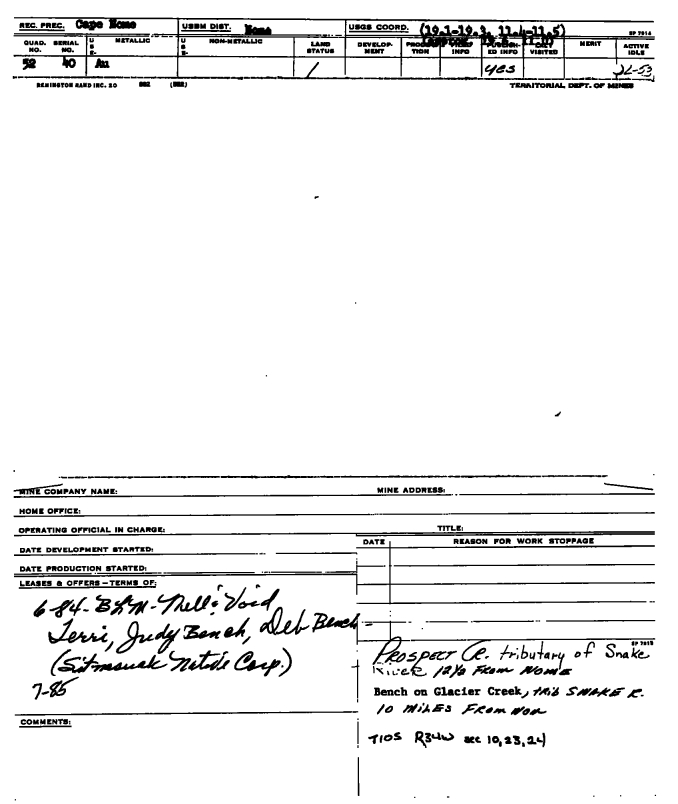 REC. PREC. Cape Nome USBM DIST. Nome USGS COORD. (19.1-19.3, 11.4-11.5)
SP 7014
QUAD. NO. SERIAL NO. USE- METALLIC USE- NON-METALLIC LAND STATUS DEVELOP- MENT PRODUC TION INFO PUBLISH- ED INFO VISITED MERIT ACTIVE IDLE
52 40 Au / yes 12-53
REMINGTON RAND INC. 20 882 (882) TERRITORIAL DEPT. OF MINES
MINE COMPANY NAME: MINE ADDRESS:
HOME OFFICE:
OPERATING OFFICIAL IN CHARGE: TITLE:
DATE DEVELOPMENT STARTED: DATE REASON FOR WORK STOPPAGE
DATE PRODUCTION STARTED:
LEASES & OFFERS - TERMS OF:
6-84- BLM- Null & Void
Terri, Judy Bench, Deb Bench -
(Sitnasuak Native Corp.)
7-85
SP 7015
PROSPECT CR. tributary of Snake
River 12½ FROM NOME
Bench on Glacier Creek, trib SNAKE R.
10 MILES FROM NOM
COMMENTS:
T10S R34W sec 10,23,24